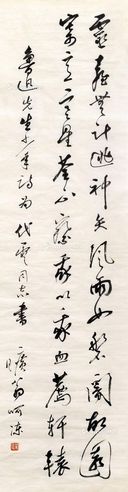 靈臺無計逃神矢風雨如磐闇故園
寄意寒星荃不察我以我血薦軒轅
魯迅先生少年詩為 代雲同志書
翁呵凍